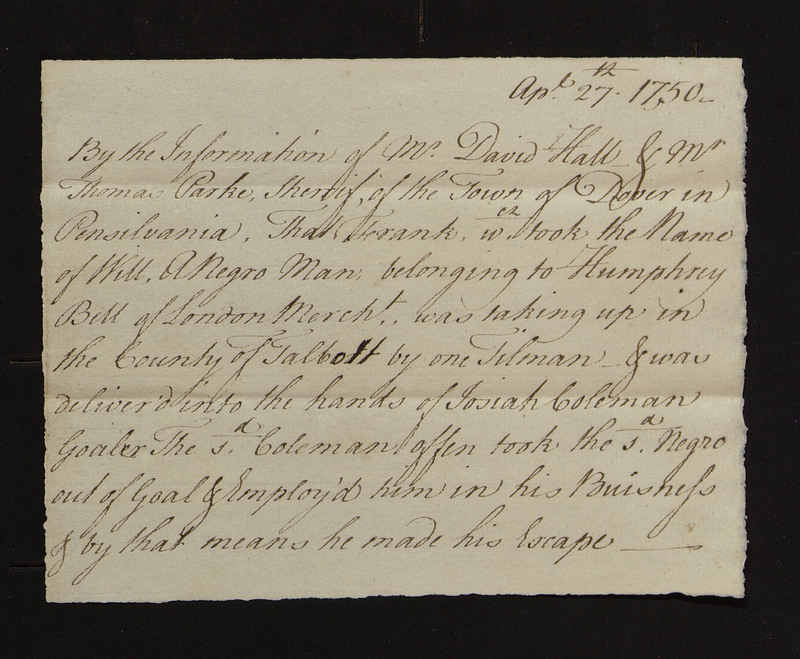 Apl. 27th. 1750
By the Information of Mr. David Hall & Mr
Thomas Parke, Sherrif, of the Town of Dover in
Pensilvania, That Frank, wch took the Name
of Will, A Negro Man, belonging to Humphrey
Bell of London Mercht., was taking up in
the County of Talbott by one Tilman & was
deliver'd into the hands of Josiah Coleman
Goaler The sd. Coleman offen took the sd. Negro
out of Goal & Employ'd him in his Buisness
& by that means he made his Escape